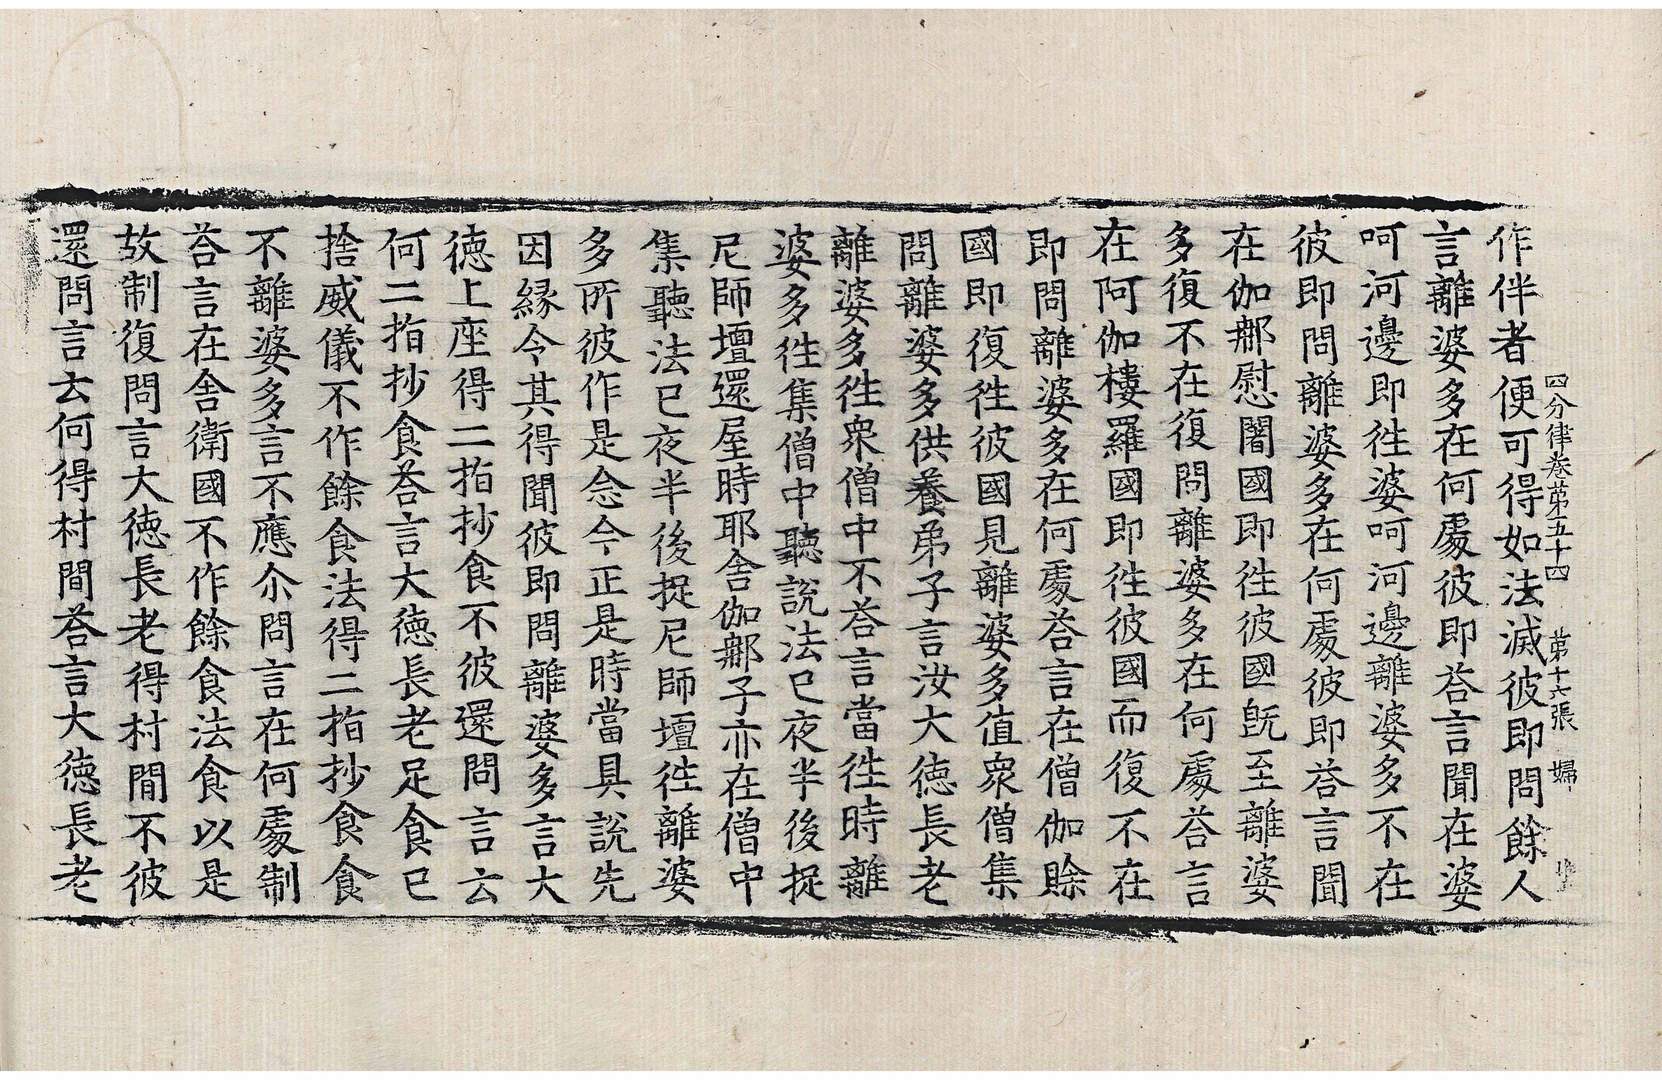 四分律卷苐五十四　苐十六張　婦
作伴者便可得如法滅彼即問餘人
言離婆多在何處彼即荅言聞在婆
呵河邊即徃婆呵河邊離婆多不在
彼即問離婆多在何處彼即荅言聞
在伽㝹慰闍國即徃彼國旣至離婆
多復不在復問離婆多在何處荅言
在阿伽樓羅國即徃彼國而復不在
即問離婆多在何處荅言在僧伽賒
國即復徃彼國見離婆多值衆僧集
問離婆多供養弟子言汝大德長老
離婆多徃衆僧中不荅言當徃時離
婆多徃集僧中聽說法已夜半後捉
尼師壇還屋時耶舍伽㝹子亦在僧中
集聽法已夜半後捉尼師壇徃離婆
多所彼作是念今正是時當具說先
因縁令其得聞彼即問離婆多言大
德上座得二指抄食不彼還問言云
何二指抄食荅言大德長老足食已
捨威儀不作餘食法得二指抄食食
不離婆多言不應尒問言在何處制
荅言在舍衛國不作餘食法食以是
故制復問言大德長老得村間不彼
還問言云何得村間荅言大德長老